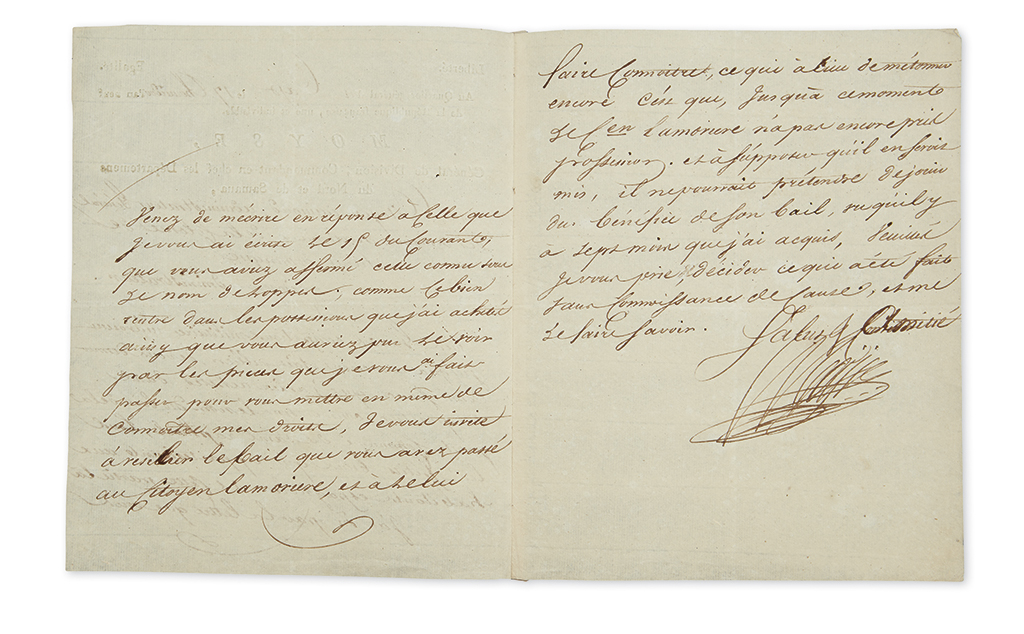 Venez de m'ecrire en réponse a Celle que
Je vous ai écrite le 15 du Courant,
que vous aviez affermé celle connue sous
Le nom de hoppes, comme ce bien
rentre dans les possessions que j'ai acheté
ainsy que vous auriez pu le voir
par les pieces que je vous ai fait
passer pour vous mettre en même de
Connoitre mes droits, Je vous invite
à resilier le Bail que vous avez passé
au Citoyen Lamoriere, et a le lui
faire Connoitre, ce qui à lieu de m'étonner
encore C'est que, Jusqu'a ce moment
Le Cen Lamoriere n'a pas encore pris
possession. et à supposer qu'il en seroit
mis, il ne pourrait prétendre de jouir
du Bénéfice de son bail, vu qu'il y
a sept mois que j'ai acquis,
Je vous prie, de décider ce qui a été fait
sans Connoissance de Cause, et me
Le faire Savoir.
Salut & Amitié
Moyse
Liberté. Egalité.
Au Quartier-général
MOYSE,
Général de Division, Commandant en chef les Départemens
du Nord et de Samana,